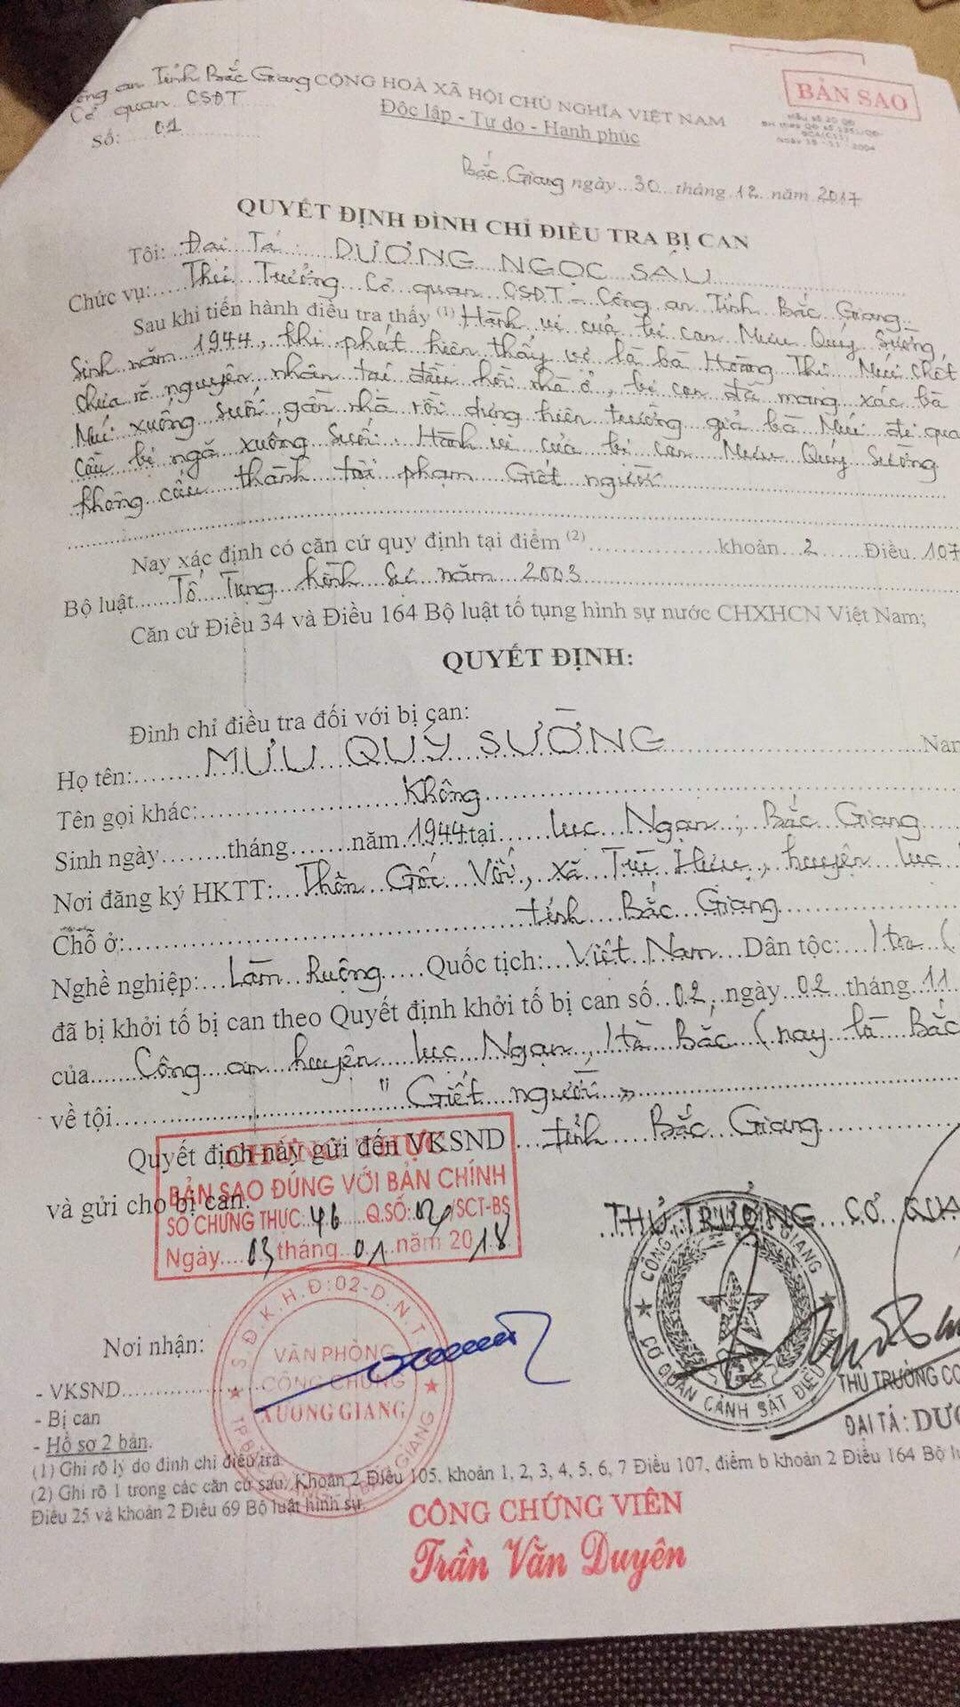 Công an Tỉnh Bắc Giang CỘNG HOÀ XÃ HỘI CHỦ NGHĨA VIỆT NAM
Cơ quan CSĐT Độc lập - Tự do - Hạnh phúc
Số: 01
BẢN SAO
Bắc Giang ngày 30 tháng 12 năm 2017
QUYẾT ĐỊNH ĐÌNH CHỈ ĐIỀU TRA BỊ CAN
Tôi: Đại Tá: DƯƠNG NGỌC SÁU
Chức vụ: Thủ Trưởng Cơ quan CSĐT - Công an Tỉnh Bắc Giang
Sau khi tiến hành điều tra thấy (1) Hành vi của bị can Mưu Quý Sường,
Sinh năm 1944, khi phát hiện thấy vợ là bà Hoàng Thị Múi chết
chưa rõ nguyên nhân tại đầu hồi nhà ở, bị can đã mang xác bà
Múi xuống suối gần nhà rồi dựng hiện trường giả bà Múi đi qua
cầu bị ngã xuống suối. Hành vi của bị can Mưu Quý Sường
không cấu thành tội phạm Giết người
Nay xác định có căn cứ quy định tại điểm (2) khoản 2 Điều 107
Bộ luật Tố Tụng hình sự năm 2003
Căn cứ Điều 34 và Điều 164 Bộ luật tố tụng hình sự nước CHXHCN Việt Nam;
QUYẾT ĐỊNH:
Đình chỉ điều tra đối với bị can:
Họ tên: MƯU QUÝ SƯỜNG
Tên gọi khác: Không
Sinh ngày tháng năm 1944 tại Lục Ngạn, Bắc Giang
Nơi đăng ký HKTT: Thôn Gốc Vối, xã Trù Hựu, huyện Lục
tỉnh Bắc Giang
Chỗ ở:
Nghề nghiệp: Làm Ruộng Quốc tịch: Việt Nam Dân tộc: Hoa (
đã bị khởi tố bị can theo Quyết định khởi tố bị can số 02, ngày 02 tháng 11
của Công an huyện Lục Ngạn, Hà Bắc (nay là Bắc
về tội "Giết người"
Quyết định này gửi đến VKSND tỉnh Bắc Giang
và gửi cho bị can.
CHỨNG THỰC
BẢN SAO ĐÚNG VỚI BẢN CHÍNH
SỐ CHỨNG THỰC: 46 Q.SỐ: 02/SCT-BS
Ngày 03 tháng 01 năm 2018
THỦ TRƯỞNG CƠ QUA
CƠ QUAN CẢNH SÁT ĐIỀU
S.Đ.K.H.Đ:02-D.N.T
VĂN PHÒNG
CÔNG CHỨNG
XƯƠNG GIANG
THỦ TRƯỞNG CƠ
ĐẠI TÁ: DƯƠ
Nơi nhận:
- VKSND
- Bị can
- Hồ sơ 2 bản.
(1) Ghi rõ lý do đình chỉ điều tra
(2) Ghi rõ 1 trong các căn cứ sau: Khoản 2 Điều 105, khoản 1, 2, 3, 4, 5, 6, 7 Điều 107, điểm b khoản 2 Điều 164 Bộ lu
Điều 25 và khoản 2 Điều 69 Bộ luật hình sự.
CÔNG CHỨNG VIÊN
Trần Văn Duyên